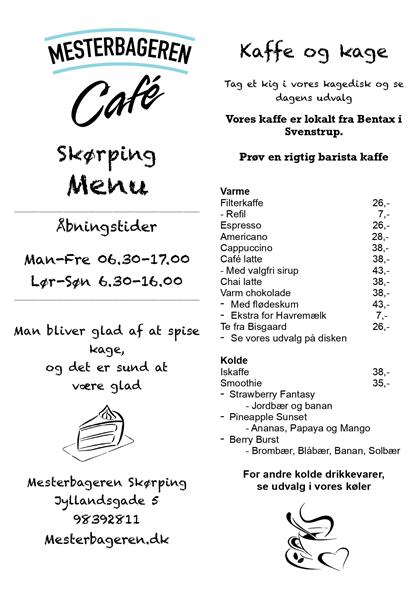 MESTERBAGEREN
Café
Skørping
Menu
Åbningstider
Man-Fre 06.30-17.00
Lør-Søn 6.30-16.00
Man bliver glad af at spise
kage,
og det er sund at
være glad
Mesterbageren Skørping
Jyllandsgade 5
98392811
Mesterbageren.dk
Kaffe og kage
Tag et kig i vores kagedisk og se
dagens udvalg
Vores kaffe er lokalt fra Bentax i
Svenstrup.
Prøv en rigtig barista kaffe
Varme
Filterkaffe 26,-
- Refil 7,-
Espresso 26,-
Americano 28,-
Cappuccino 38,-
Café latte 38,-
- Med valgfri sirup 43,-
Chai latte 38,-
Varm chokolade 38,-
- Med flødeskum 43,-
- Ekstra for Havremælk 7,-
Te fra Bisgaard 26,-
- Se vores udvalg på disken
Kolde
Iskaffe 38,-
Smoothie 35,-
- Strawberry Fantasy
- Jordbær og banan
- Pineapple Sunset
- Ananas, Papaya og Mango
- Berry Burst
- Brombær, Blåbær, Banan, Solbær
For andre kolde drikkevarer,
se udvalg i vores køler